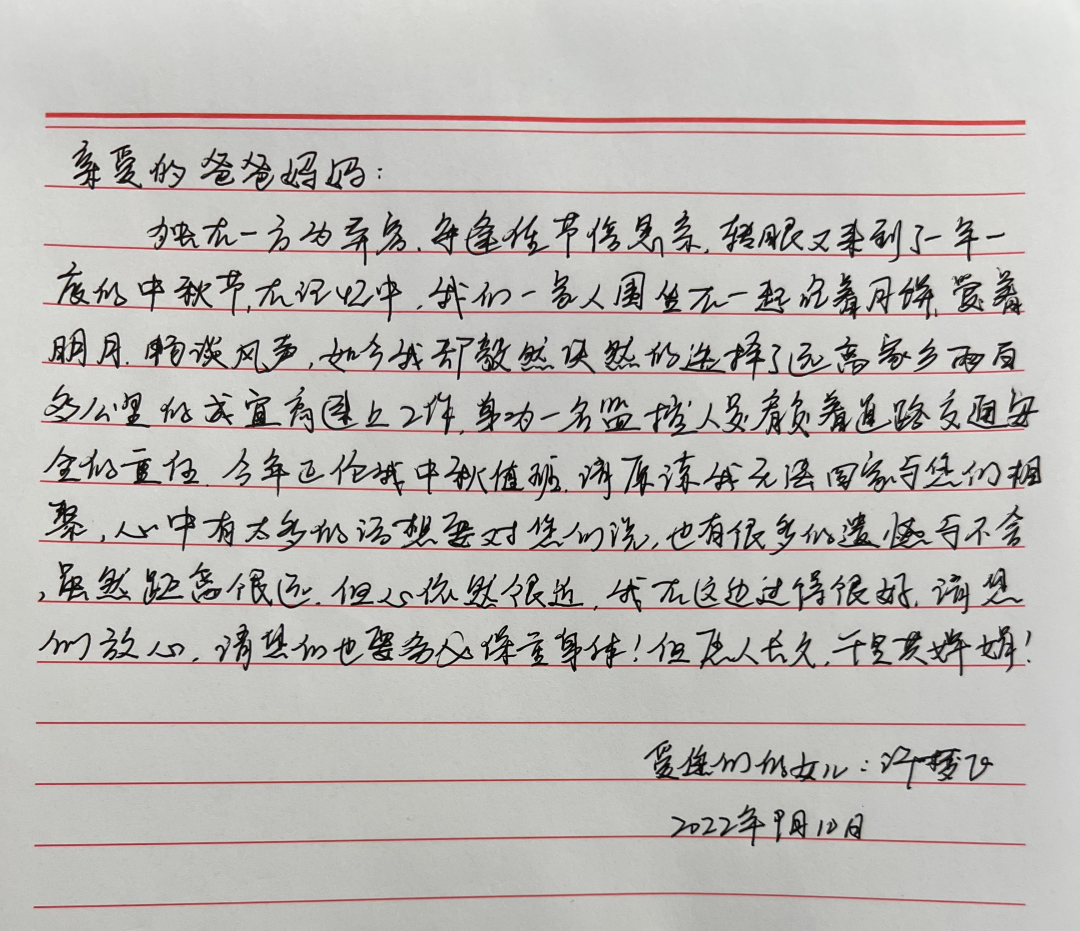 亲爱的爸爸妈妈：
独在一方为异客，每逢佳节倍思亲，转眼又来到了一年一
度的中秋节，在记忆中，我们一家人围坐在一起吃着月饼，赏着
明月，畅谈风声，如今我却毅然决然的选择了远离家乡两百
多公里的成宜高速上工作，身为一名监控人员肩负着道路交通安
全的重任，今年正伦我中秋值班，请原谅我无法回家与您们相
聚，心中有太多的话想要对您们说，也有很多的遗憾与不舍
，虽然距离很远，但心依然很近，我在这边过得很好，请您
们放心，请您们也要务必保重身体！但愿人长久，千里共婵娟！
爱您们的女儿：许梦
2022年9月10日